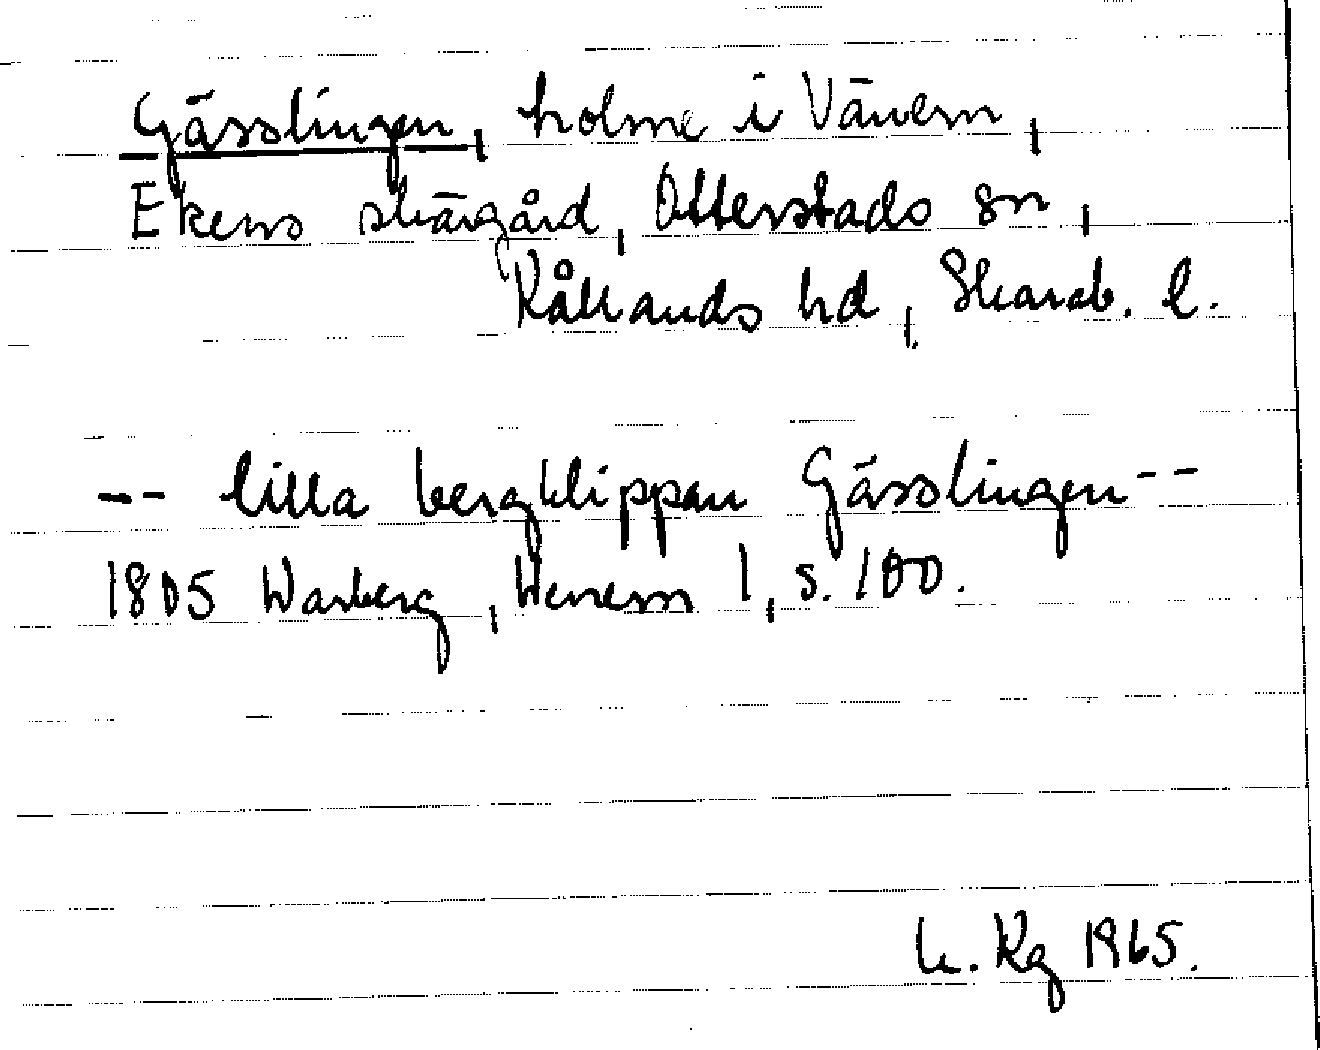 Gässlingen, holme i Vänern,
Ekens skärgård, Otterstads sn,
Kållands hd, Skarab. l.
-- lilla bergklippan Gässlingen --
1805 Warberg, Wenern 1, s. 100.
Kg 1965.